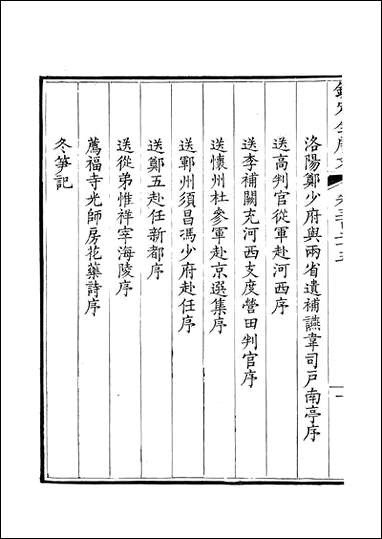 洛陽鄭少府與兩省遺補讌韋司戶南亭序
送高判官從軍赴河西序
送李補闕充河西支度營田判官序
送懷州杜參軍赴京選集序
送鄆州須昌馮少府赴任序
送鄭五赴任新都序
送從弟惟祥宰海陵序
薦福寺光師房花藥詩序
冬筍記